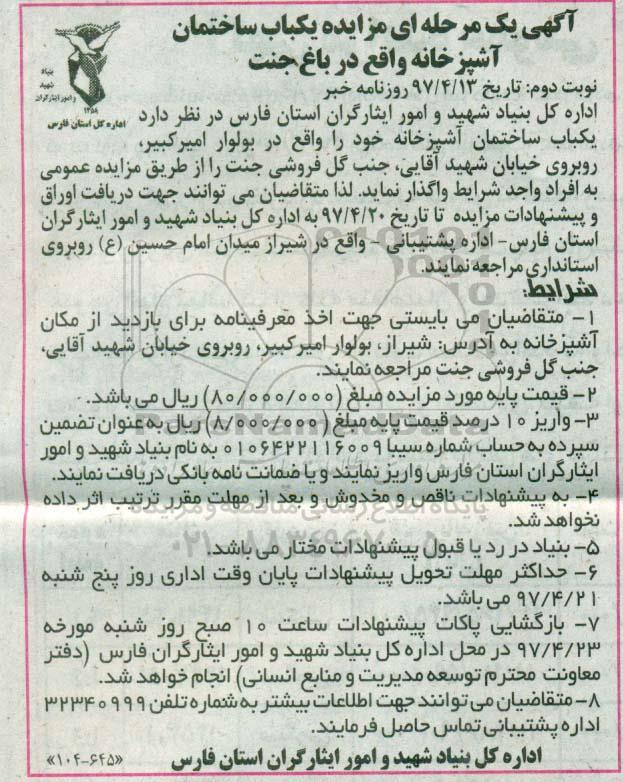 آگهی یک مرحله ای مزایده یکباب ساختمان
آشپزخانه واقع در باغ جنت
بنیاد
شهید
و امور ایثارگران
۱۳۵۸
اداره کل استان فارس
نوبت دوم: تاریخ ۹۷/۴/۱۳ روزنامه خبر
اداره کل بنیاد شهید و امور ایثارگران استان فارس در نظر دارد
یکباب ساختمان آشپزخانه خود را واقع در بولوار امیرکبیر،
روبروی خیابان شهید آقایی، جنب گل فروشی جنت را از طریق مزایده عمومی
به افراد واجد شرایط واگذار نماید. لذا متقاضیان می توانند جهت دریافت اوراق
و پیشنهادات مزایده تا تاریخ ۹۷/۴/۲۰ به اداره کل بنیاد شهید و امور ایثارگران
استان فارس- اداره پشتیبانی - واقع در شیراز میدان امام حسین (ع) روبروی
استانداری مراجعه نمایند.
شرایط:
۱- متقاضیان می بایستی جهت اخذ معرفینامه برای بازدید از مکان
آشپزخانه به آدرس: شیراز، بولوار امیرکبیر، روبروی خیابان شهید آقایی،
جنب گل فروشی جنت مراجعه نمایند.
۲- قیمت پایه مورد مزایده مبلغ (۸۰/۰۰۰/۰۰۰) ریال می باشد.
۳- واریز ۱۰ درصد قیمت پایه مبلغ (۸/۰۰۰/۰۰۰) ریال به عنوان تضمین
سپرده به حساب شماره سیبا ۰۱۰۶۴۲۲۱۱۶۰۰۹ به نام بنیاد شهید و امور
ایثارگران استان فارس واریز نمایند و یا ضمانت نامه بانکی دریافت نمایند.
۴- به پیشنهادات ناقص و مخدوش و بعد از مهلت مقرر ترتیب اثر داده
نخواهد شد.
۵- بنیاد در رد یا قبول پیشنهادات مختار می باشد.
۶- حداکثر مهلت تحویل پیشنهادات پایان وقت اداری روز پنج شنبه
۹۷/۴/۲۱ می باشد.
۷- بازگشایی پاکات پیشنهادات ساعت ۱۰ صبح روز شنبه مورخه
۹۷/۴/۲۳ در محل اداره کل بنیاد شهید و امور ایثارگران فارس (دفتر
معاونت محترم توسعه مدیریت و منابع انسانی) انجام خواهد شد.
۸- متقاضیان می توانند جهت اطلاعات بیشتر به شماره تلفن ۳۲۳۴۰۹۹۹
اداره پشتیبانی تماس حاصل فرمایند.
اداره کل بنیاد شهید و امور ایثارگران استان فارس
«۱۰۴-۶۴۵»